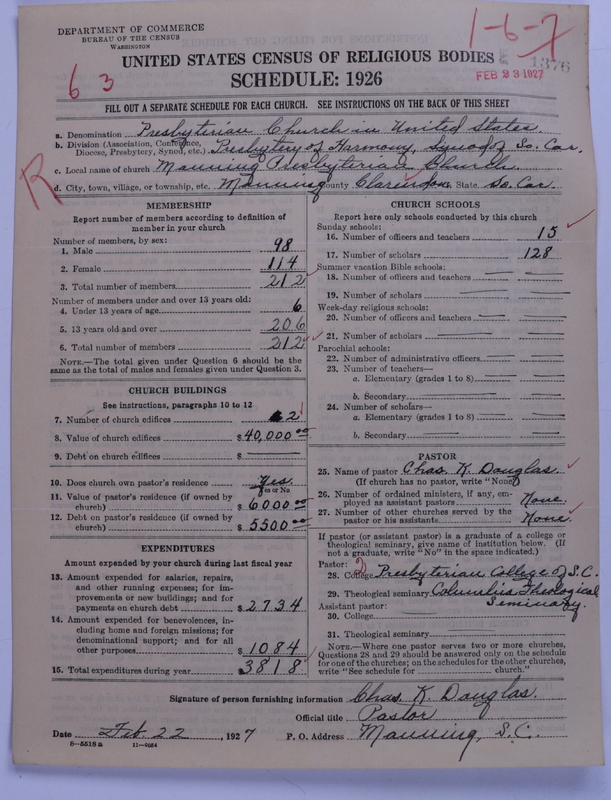 DEPARTMENT OF COMMERCE
BUREAU OF THE CENSUS
WASHINGTON
1-6-7
1376
FEB 23 1927
63
UNITED STATES CENSUS OF RELIGIOUS BODIES
SCHEDULE: 1926
FILL OUT A SEPARATE SCHEDULE FOR EACH CHURCH. SEE INSTRUCTIONS ON THE BACK OF THIS SHEET
R
a. Denomination Presbyterian Church in United States.
b. Division (Association, Conference, Diocese, Presbytery, Synod, etc.) Presbytery of Harmony, Synod of So. Car.
c. Local name of church Manning Presbyterian Church
d. City, town, village, or township, etc. Manning County Clarendon State, So. Car.
MEMBERSHIP
Report number of members according to definition of
member in your church
Number of members, by sex:
1. Male 98
2. Female 114
3. Total number of members 212
Number of members under and over 13 years old:
4. Under 13 years of age 6
5. 13 years old and over 206
6. Total number of members 212
NOTE.—The total given under Question 6 should be the
same as the total of males and females given under Question 3.
CHURCH BUILDINGS
See instructions, paragraphs 10 to 12
7. Number of church edifices 2
8. Value of church edifices $40,000 00
9. Debt on church edifices $
10. Does church own pastor's residence Yes.
Yes or No
11. Value of pastor's residence (if owned by
church) $6000 00
12. Debt on pastor's residence (if owned by
church) $5500 00
EXPENDITURES
Amount expended by your church during last fiscal year
13. Amount expended for salaries, repairs,
and other running expenses; for im-
provements or new buildings; and for
payments on church debt $2734
14. Amount expended for benevolences, in-
cluding home and foreign missions; for
denominational support; and for all
other purposes $1084
15. Total expenditures during year $3818
CHURCH SCHOOLS
Report here only schools conducted by this church
Sunday schools:
16. Number of officers and teachers 15
17. Number of scholars 128
Summer vacation Bible schools:
18. Number of officers and teachers
19. Number of scholars
Week-day religious schools:
20. Number of officers and teachers
21. Number of scholars
Parochial schools:
22. Number of administrative officers
23. Number of teachers—
a. Elementary (grades 1 to 8)
b. Secondary
24. Number of scholars—
a. Elementary (grades 1 to 8)
b. Secondary
PASTOR
25. Name of pastor Chas. K. Douglas.
(If church has no pastor, write "None")
26. Number of ordained ministers, if any, em-
ployed as assistant pastors None.
27. Number of other churches served by the
pastor or his assistants None.
If pastor (or assistant pastor) is a graduate of a college or
theological seminary, give name of institution below. (If
not a graduate, write "No" in the space indicated.)
Pastor: 2
28. College Presbyterian College of S.C.
29. Theological seminary Columbia Theological
Seminary.
Assistant pastor:
30. College
31. Theological seminary
NOTE.—Where one pastor serves two or more churches,
Questions 28 and 29 should be answered only on the schedule
for one of the churches; on the schedules for the other churches,
write "See schedule for church."
Signature of person furnishing information Chas. K. Douglas.
Official title Pastor
Date Feb. 22, 1927 P. O. Address Manning, S.C.
8—5518a 11—9084